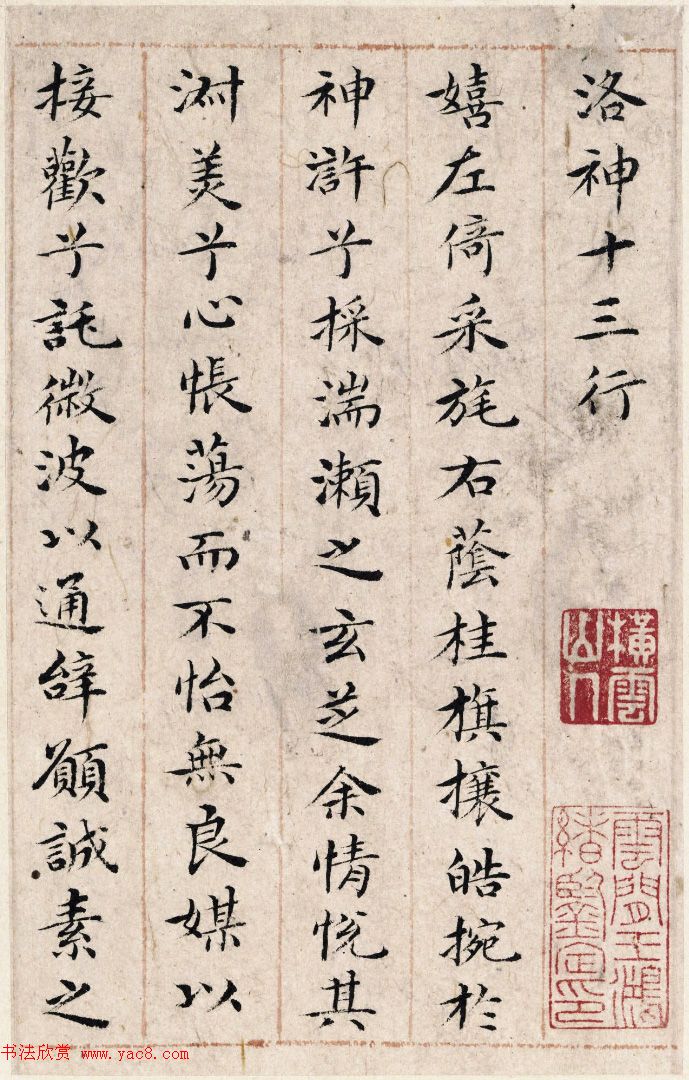 洛神十三行
嬉左倚采旄右蔭桂旗攘皓捥於
神許兮採湍瀨之玄芝余情悅其
淑美兮心悵蕩而不怡無良媒以
接歡兮託微波以通辭願誠素之
橫雲山人
雲間王鴻緒鑒定印
书法欣赏 www.yac8.com